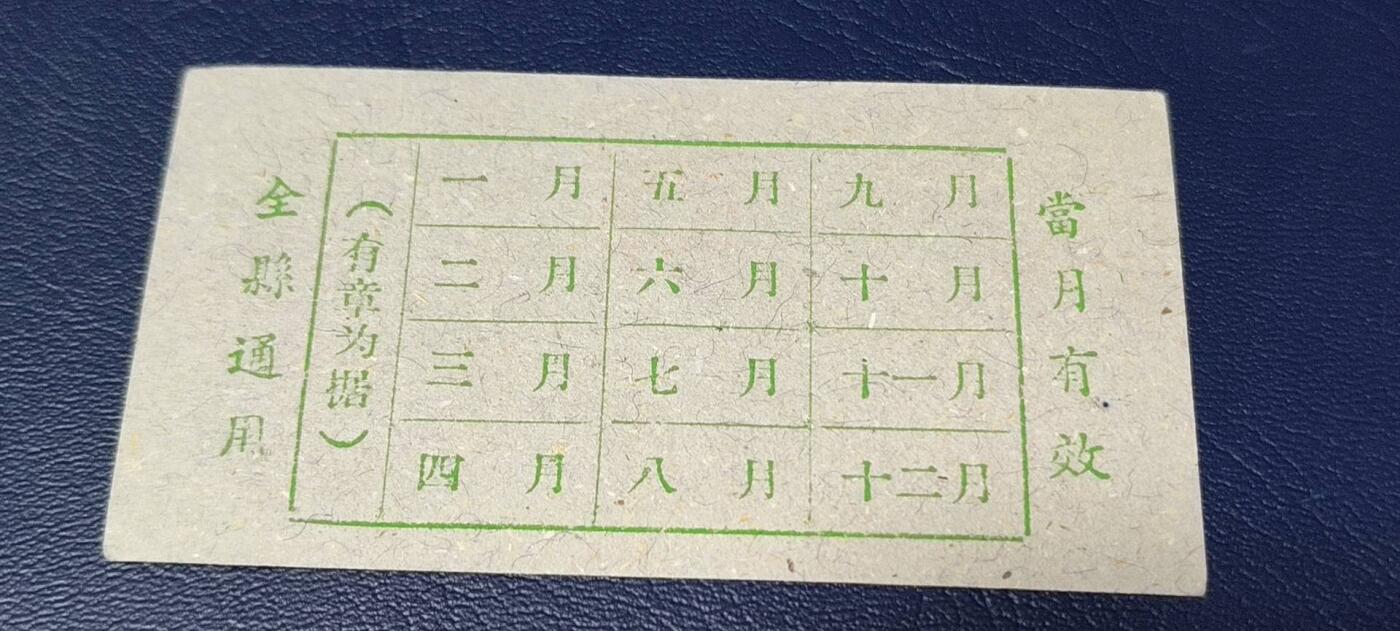 全縣通用
(有章为据)
一月 五月 九月
二月 六月 十月
三月 七月 十一月
四月 八月 十二月
當月有效